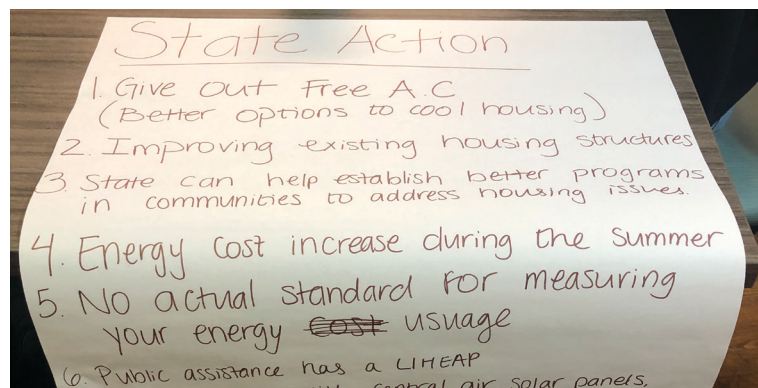 State Action
1. Give Out Free A.C
(Better options to cool housing)
2. Improving existing housing structures
3. State can help establish better programs
in communities to address housing issues.
4. Energy cost increase during the summer
5. No actual standard for measuring
your energy cost usuage
6. Public assistance has a LIHEAP
central air solar panels,